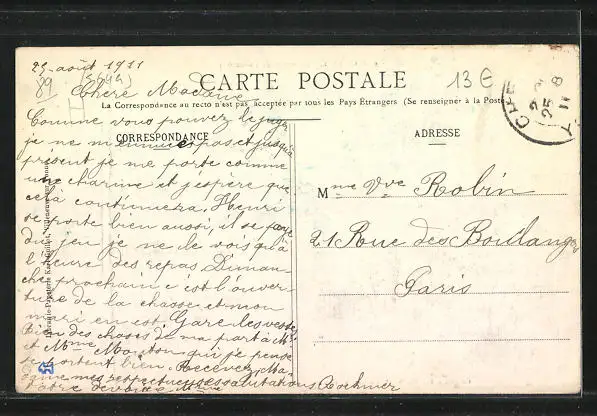 23 août 1911
89
13 €
Chère Madame
CARTE POSTALE
La Correspondance au recto n'est pas acceptée par tous les Pays Etrangers (Se renseigner à la Poste
CORRESPONDANCE
Comme vous pouvez le juger
je ne m'ennuie pas et jusqu'à
présent je me porte comme
une charme et j'espère que
cela continuera. Henri
se porte bien aussi, il se paye
du jeu je ne le vois qu'à
l'heure des repas. Diman-
che prochaine c'est l'ouver-
ture de la chasse et mon
mari en est. Gare les vestes
Bien des choses de ma part à Mr
et Mme qui je pense
se portent bien. Recevez, Ma-
dame mes respectueuses salutations
Votre dévouée
ADRESSE
Mme Vve Robin
21 Rue des Boulangers
Paris
25 8
11